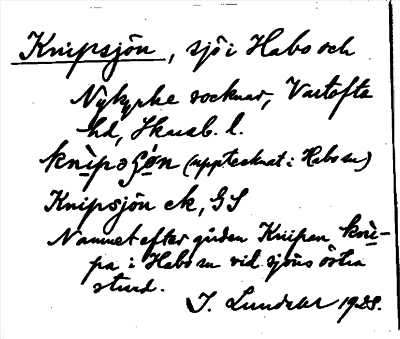 Knipsjön, sjö i Habo och
Nykyrke socknar, Vartofta
hd, Skarab. l.
knìpəʃø̀n (upptecknat i Habo sn)
Knipsjön ek, GS
Namnet efter gården Knipan knì-
pa i Habo sn vid sjöns östra
strand.
I. Lundahl 1928.